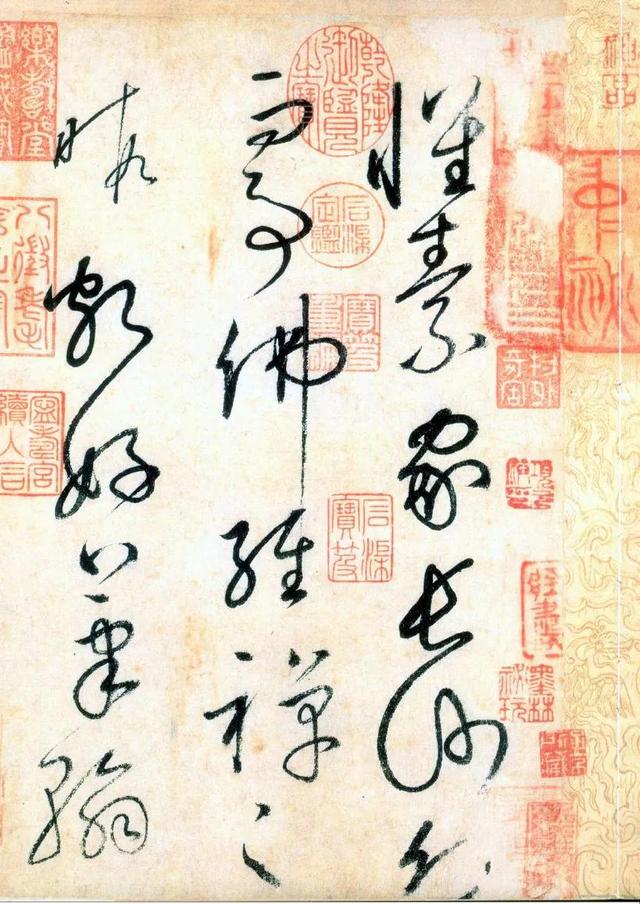 懷素家長沙幼
而事佛經禪之
暇頗好筆翰
乾隆御覽之寶
石渠定鑑
寶笈重編
石渠寶笈